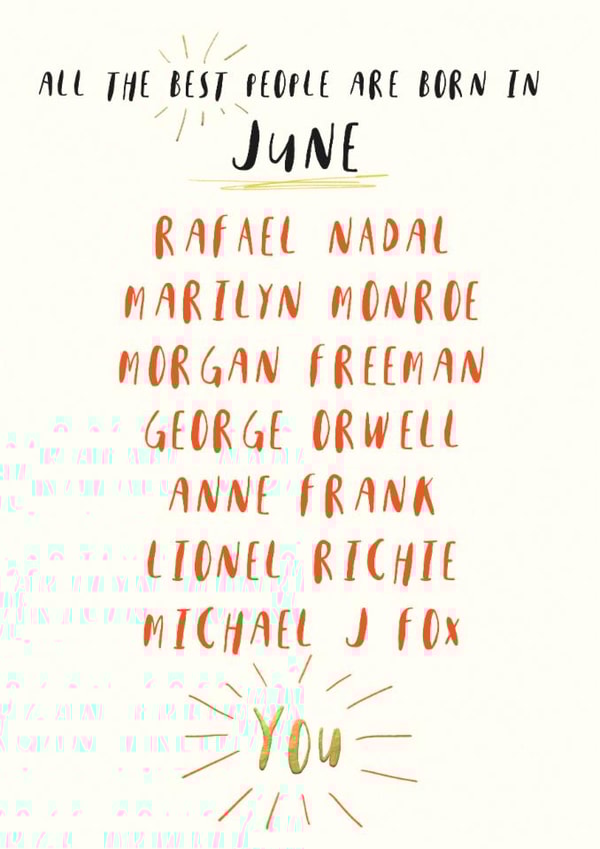 ALL THE BEST PEOPLE ARE BORN IN
JUNE
RAFAEL NADAL
MARILYN MONROE
MORGAN FREEMAN
GEORGE ORWELL
ANNE FRANK
LIONEL RICHIE
MICHAEL J FOX
YOU